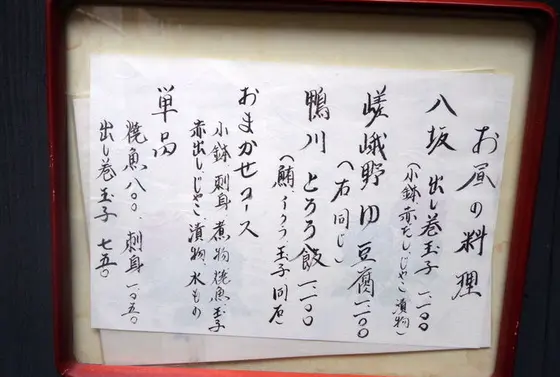 お昼の料理
八坂 出し巻玉子 一、一〇〇
(小鉢 赤だし、じゃこ 漬物)
嵯峨野 ゆ豆腐 一、二〇〇
(右同じ)
鴨川 とろろ飯 一、二〇〇
(鮪 イクラ 玉子 同右)
おまかせコース
小鉢、刺身、煮物 焼魚 玉子
赤出し、じゃこ、漬物、水もの
単品
焼魚 八〇〇、刺身 一、〇五〇
出し巻玉子 七五〇